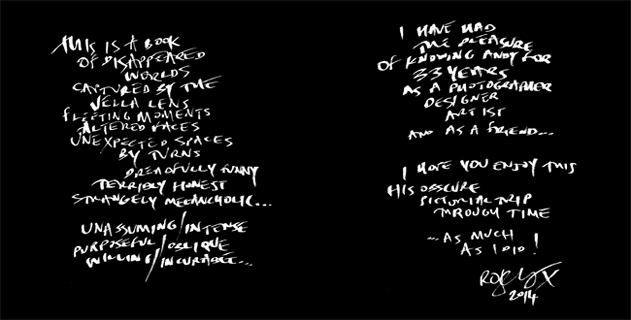 THIS IS A BOOK
OF DISAPPEARED
WORLDS
CAPTURED BY THE
VELLA LENS
FLEETING MOMENTS
ALTERED FACES
UNEXPECTED SPACES
BY TURNS
DREADFULLY FUNNY
TERRIBLY HONEST
STRANGELY MELANCHOLIC...
UNASSUMING/INTENSE
PURPOSEFUL/OBLIQUE
WILLING/INCURABLE...
I HAVE HAD
THE PLEASURE
OF KNOWING ANDY FOR
33 YEARS
AS A PHOTOGRAPHER
DESIGNER
ARTIST
AND AS A FRIEND...
I HOPE YOU ENJOY THIS
HIS OBSCURE
PICTORIAL TRIP
THROUGH TIME
...AS MUCH
AS I DID!
X
2014